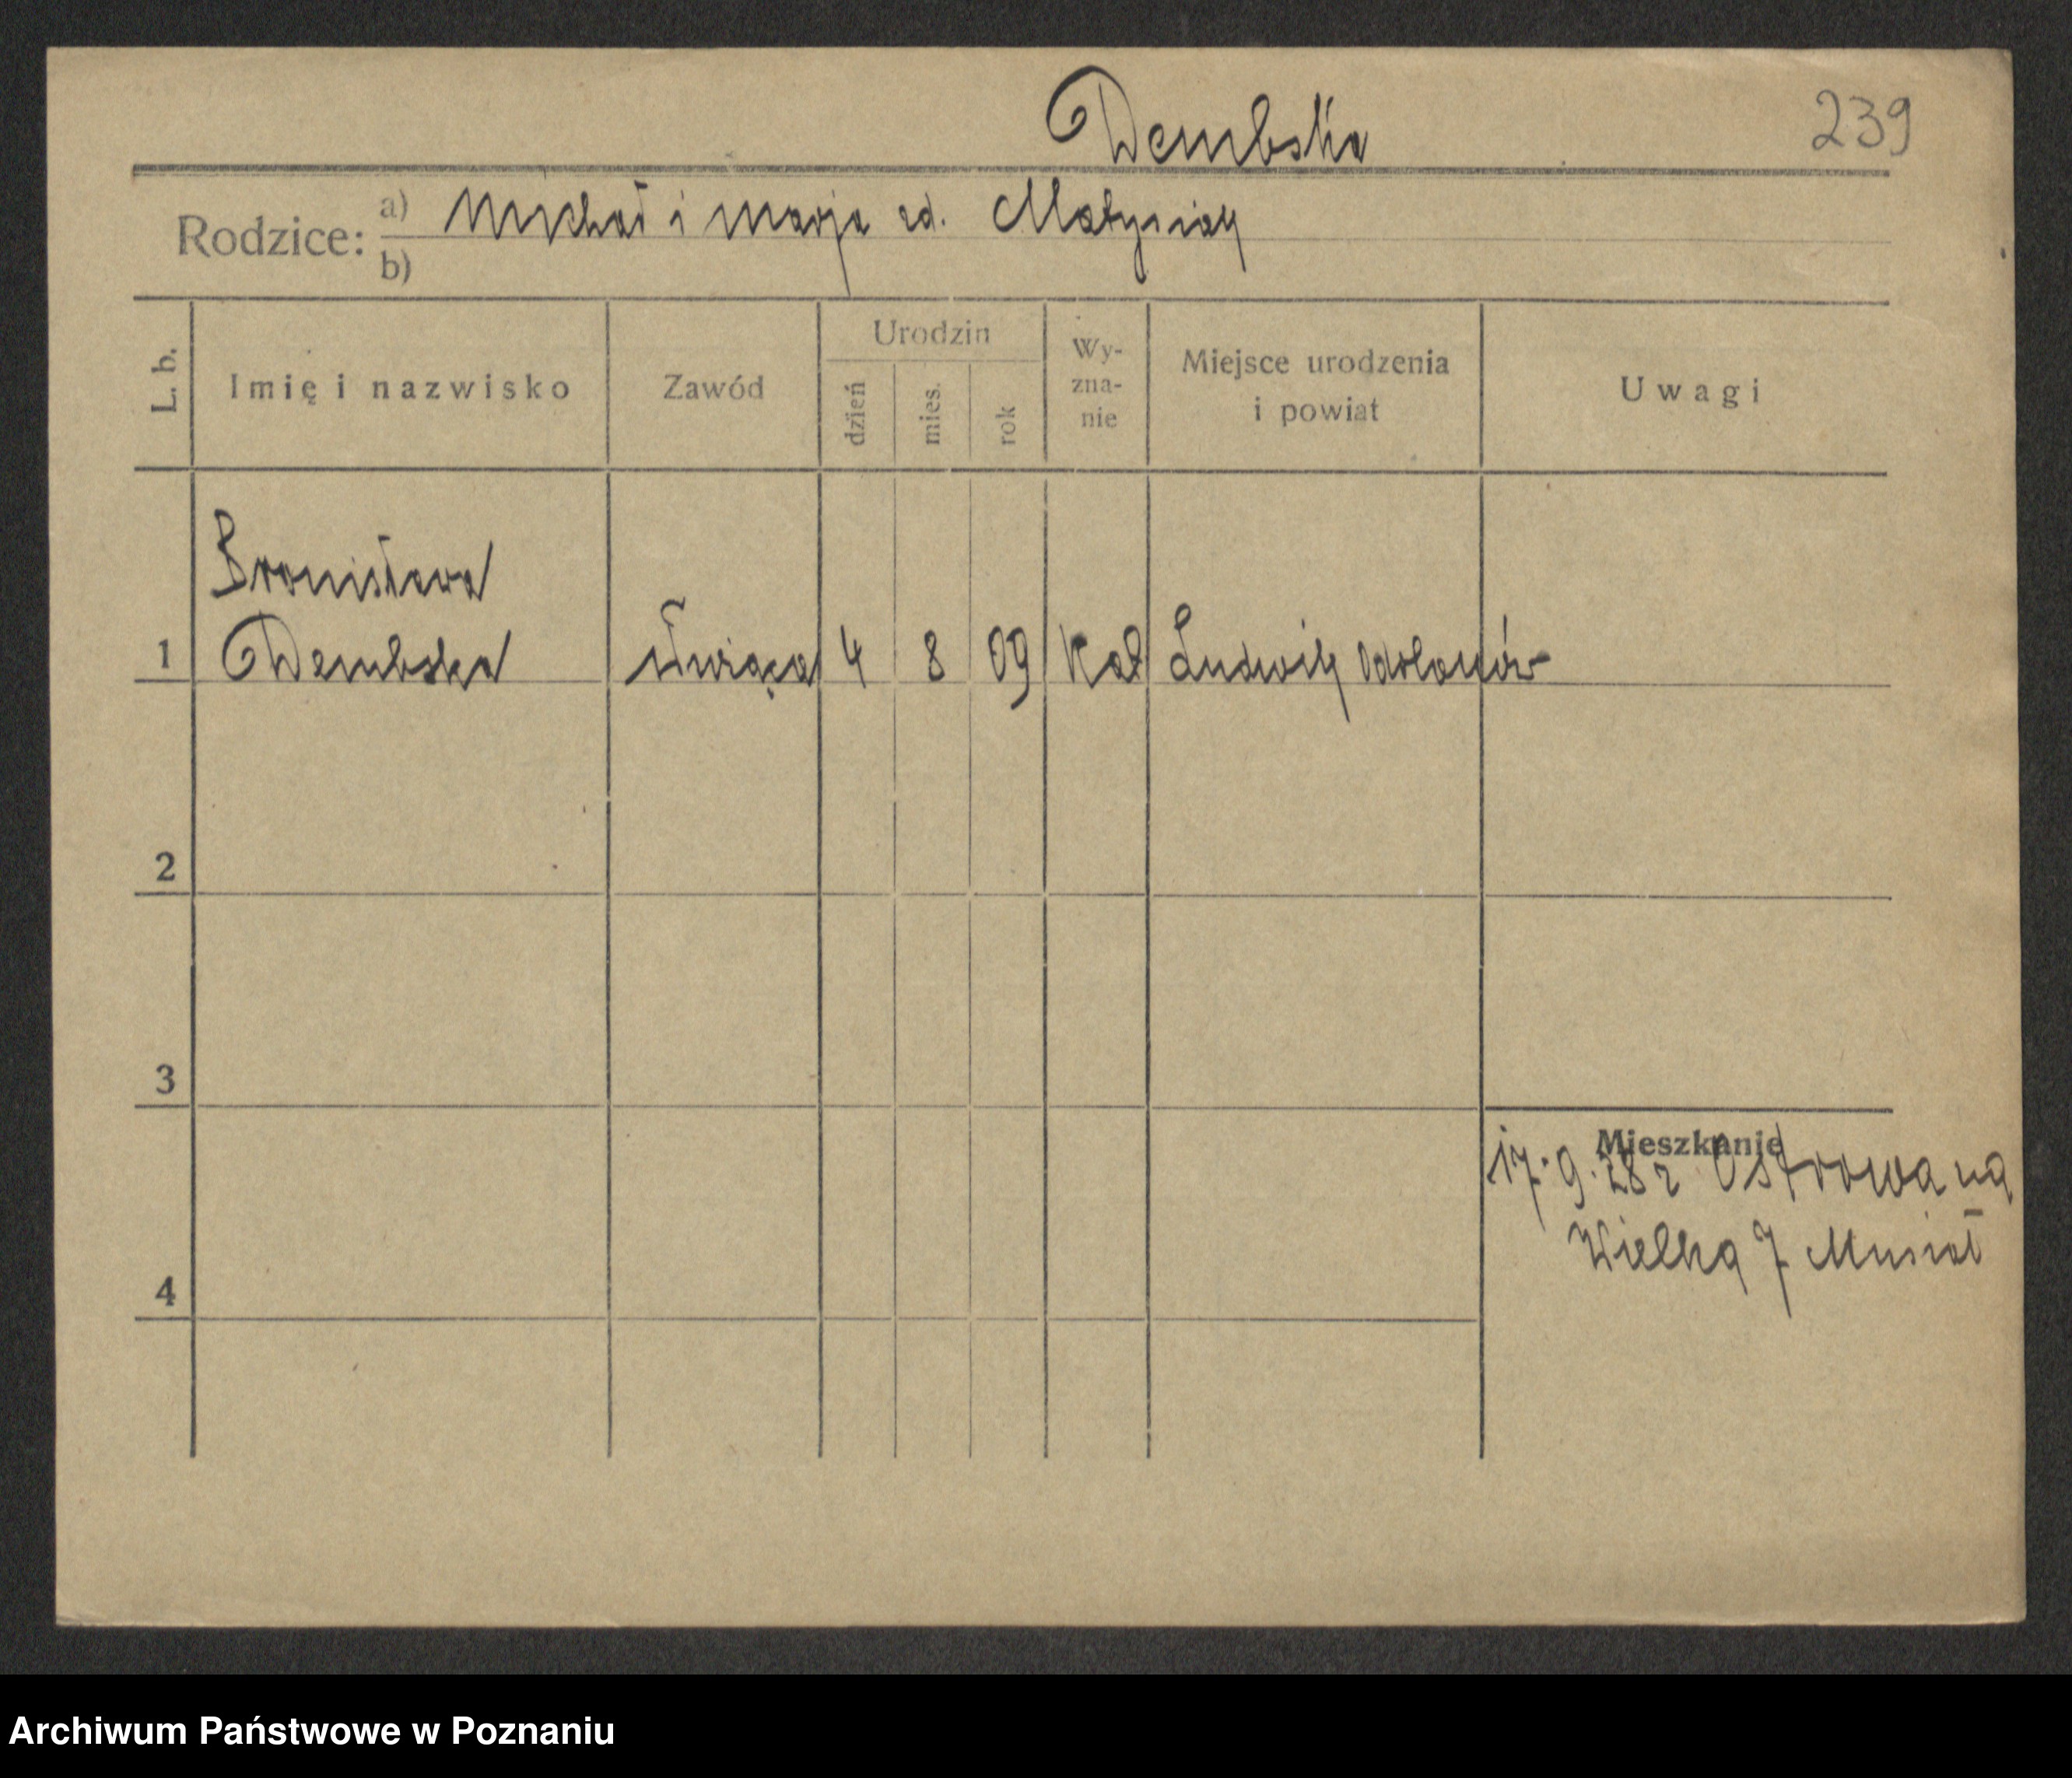 Dembska
239
Rodzice: a) Michał i Marja zd. Matysiak
b)
L. b.
Imię i nazwisko
Zawód
Urodzin
dzień
mies.
rok
Wy-
zna-
nie
Miejsce urodzenia
i powiat
Uwagi
Bronisława
1 Dembska służąca 4 8 09 Kat Ludwik Odolanów
2
3
4
Mieszkanie
17.9.28 r Ostrowa na
Wielka 7 Musiał
Archiwum Państwowe w Poznaniu